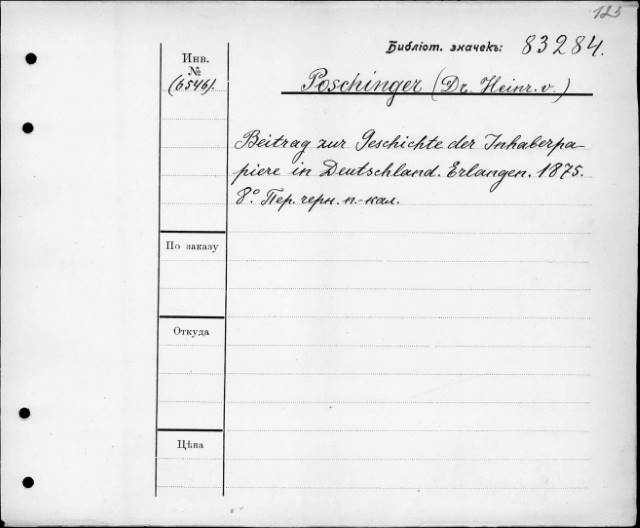 125
Библіот. значекъ: 83284.
Инв.
№
(6546).
Poschinger (Dr. Heinr. v.)
Beitrag zur Geschichte der Inhaberpa-
piere in Deutschland. Erlangen. 1875.
8º. Пер. черн. п.-кал.
По заказу
Откуда
Цѣна